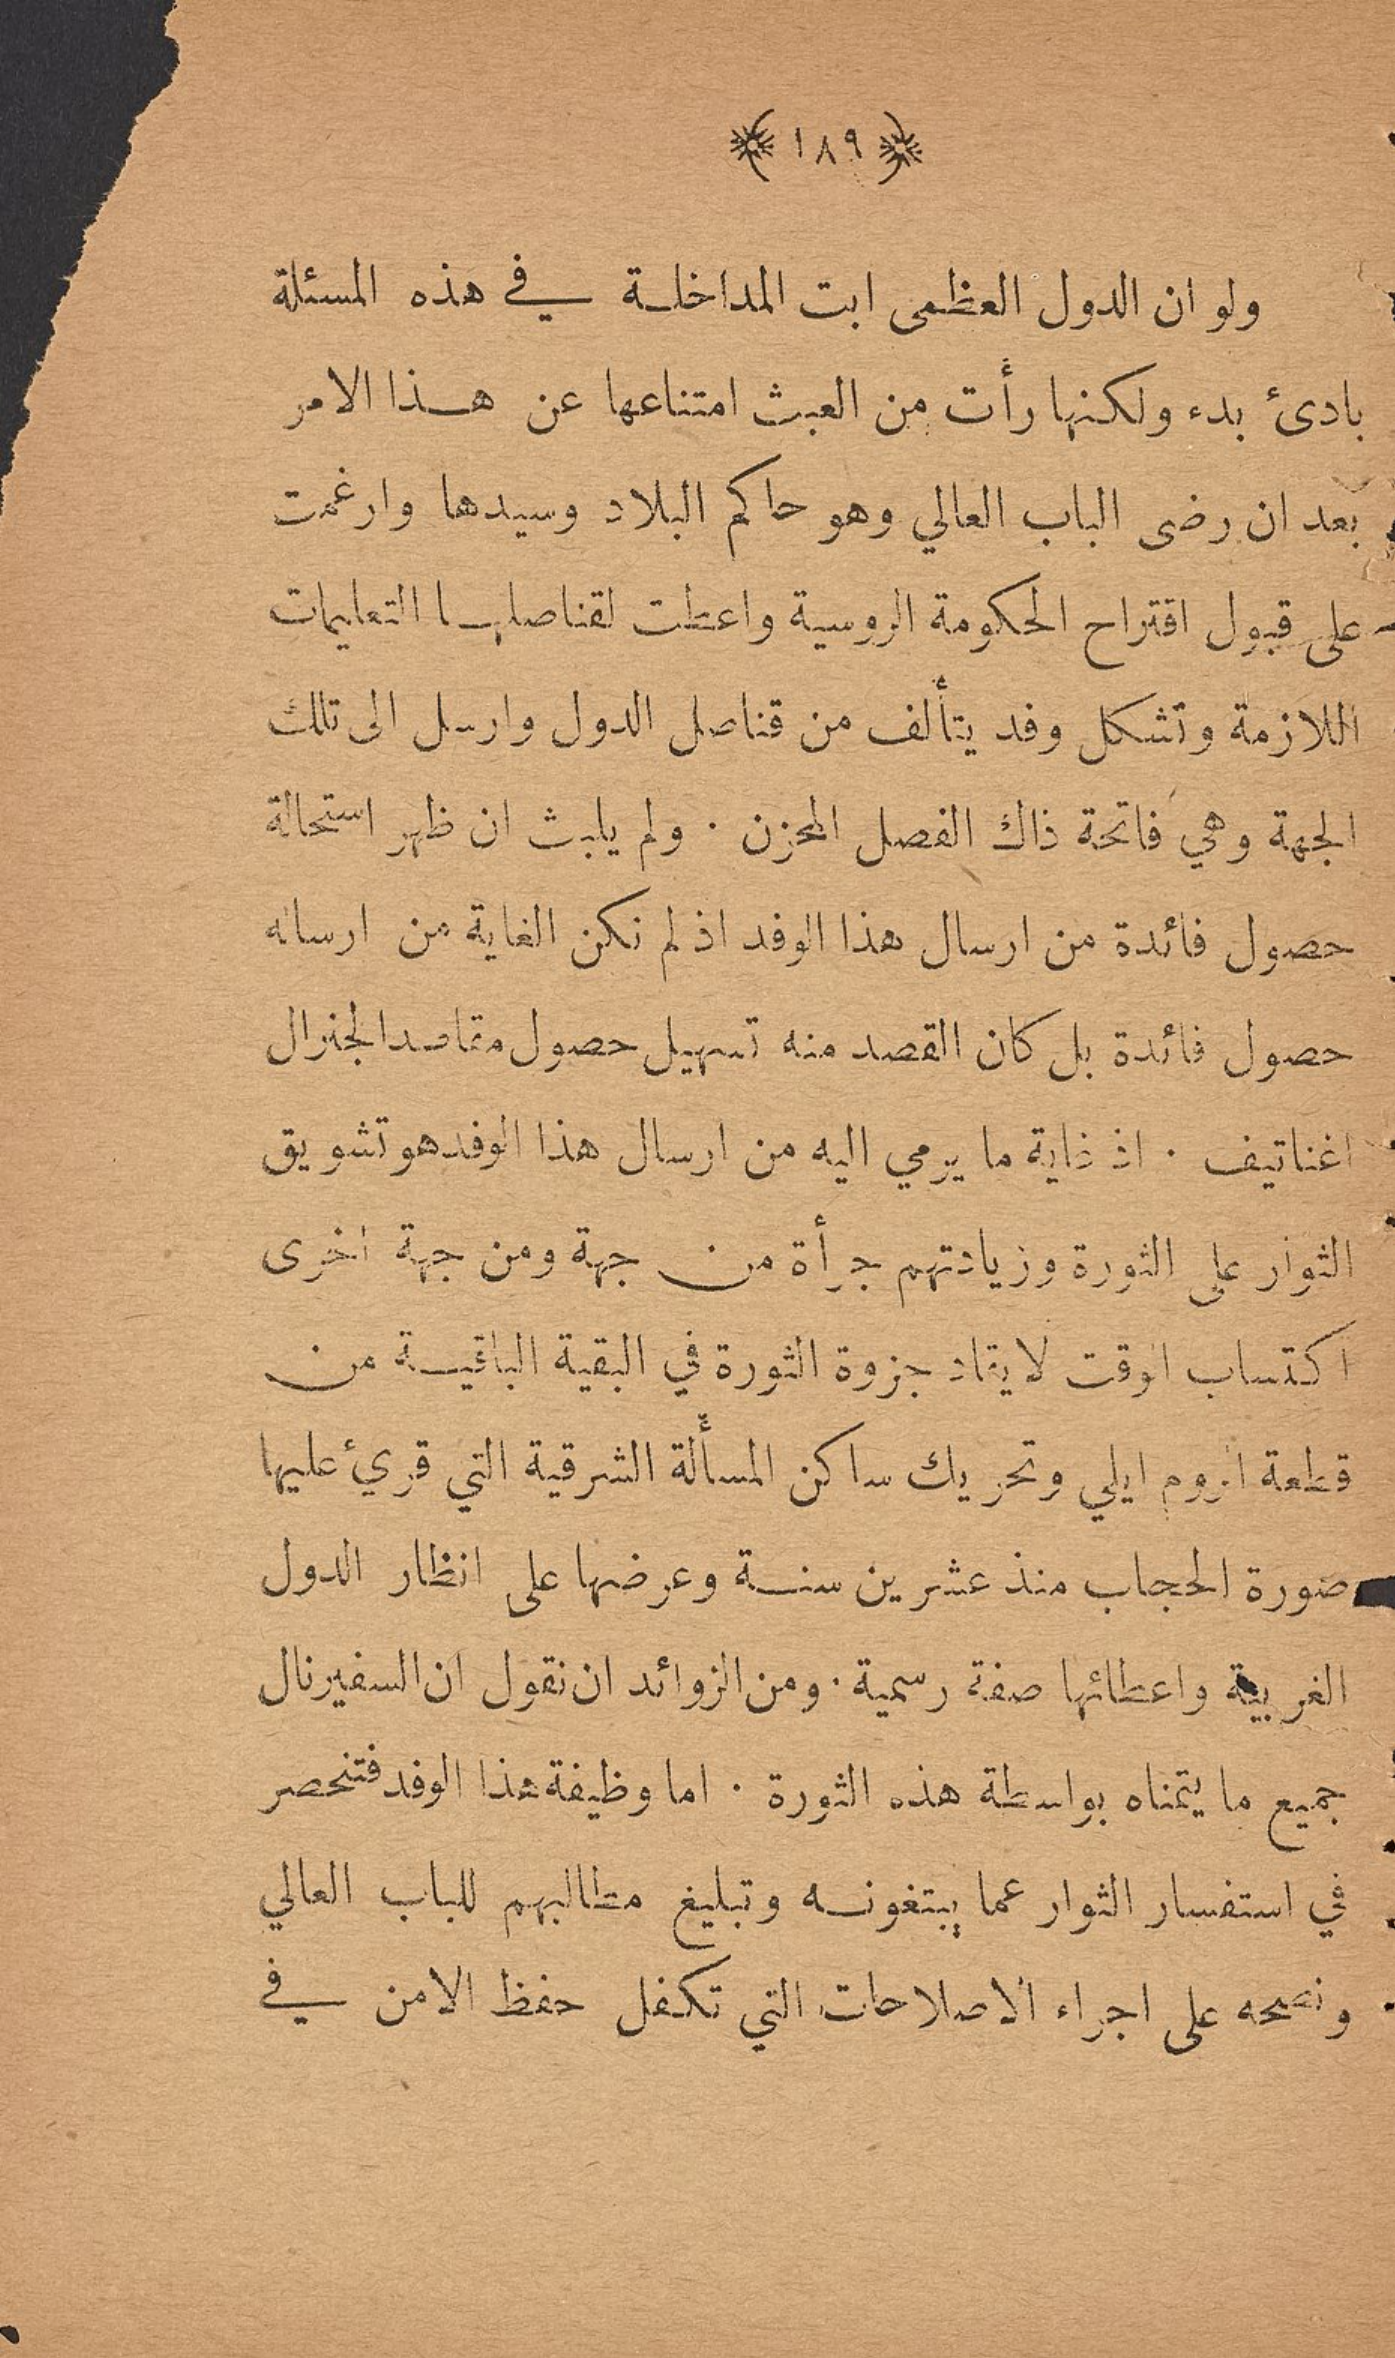 ﴿ ١٨٩ ﴾
ولو ان الدول العظمى ابت المداخلة في هذه المسئلة
بادئ بدء ولكنها رأت من العبث امتناعها عن هذا الامر
بعد ان رضى الباب العالي وهو حاكم البلاد وسيدها وارغمت
على قبول اقتراح الحكومة الروسية واعطت لقناصلها التعليمات
اللازمة وتشكل وفد يتألف من قناصل الدول وارسل الى تلك
الجهة وهي فاتحة ذاك الفصل المحزن . ولم يلبث ان ظهر استحالة
حصول فائدة من ارسال هذا الوفد اذ لم نكن الغاية من ارساله
حصول فائدة بل كان القصد منه تسهيل حصول مقاصد الجنرال
اغناتيف . اذ غاية ما يرمي اليه من ارسال هذا الوفد هو تشويق
الثوار على الثورة وزيادتهم جرأة من جهة ومن جهة اخرى
اكتساب الوقت لايقاد جزوة الثورة في البقية الباقية من
قطعة الروم ايلي وتحريك ساكن المسألة الشرقية التي قريء عليها
صورة الحجاب منذ عشرين سنة وعرضها على انظار الدول
الغربية واعطائها صفة رسمية . ومن الزوائد ان نقول ان السفير نال
جميع ما يتمناه بواسطة هذه الثورة . اما وظيفة هذا الوفد فتنحصر
في استفسار الثوار عما يبتغونه وتبليغ مطالبهم للباب العالي
ونصحه على اجراء الاصلاحات التي تكفل حفظ الامن في